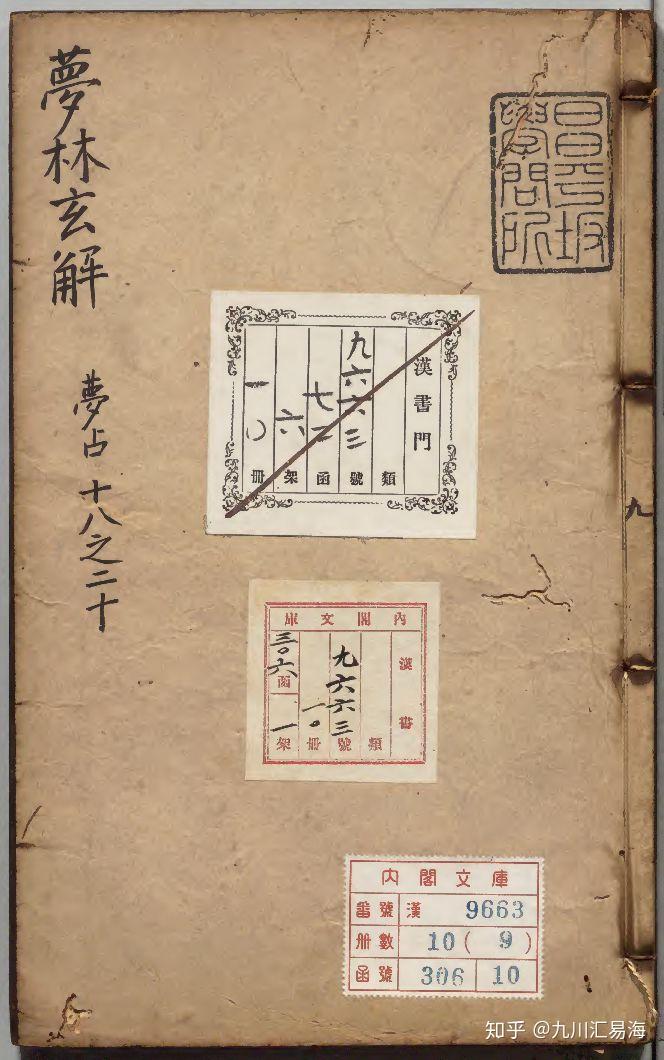 夢林玄解
夢占 十八之二十
昌平坂
學問所
漢書門
類
九六六三號
七二函
六架
一〇冊
九
內閣文庫
漢書
類
九六六三號
一〇冊
三〇六函
一架
內閣文庫
番號 漢 9663
冊數 10 ( 9 )
函號 306 10
知乎 @九川汇易海